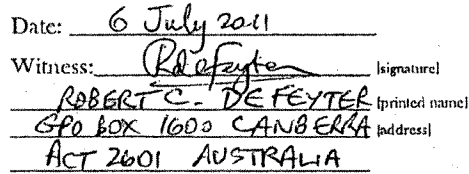 Date: 6 July 2011
Witness: RdeFeyter [signature]
ROBERT C. DE FEYTER [printed name]
GPO BOX 1600 CANBERRA [address]
ACT 2601 AUSTRALIA